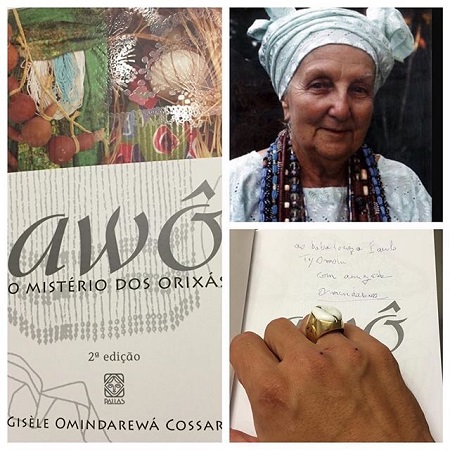 awô
O MISTÉRIO DOS ORIXÁS
2ª edição
PALLAS
GISÈLE OMINDAREWÁ COSSAR
ao babalorixá Paulo
com amizade
Omindarewa
awô